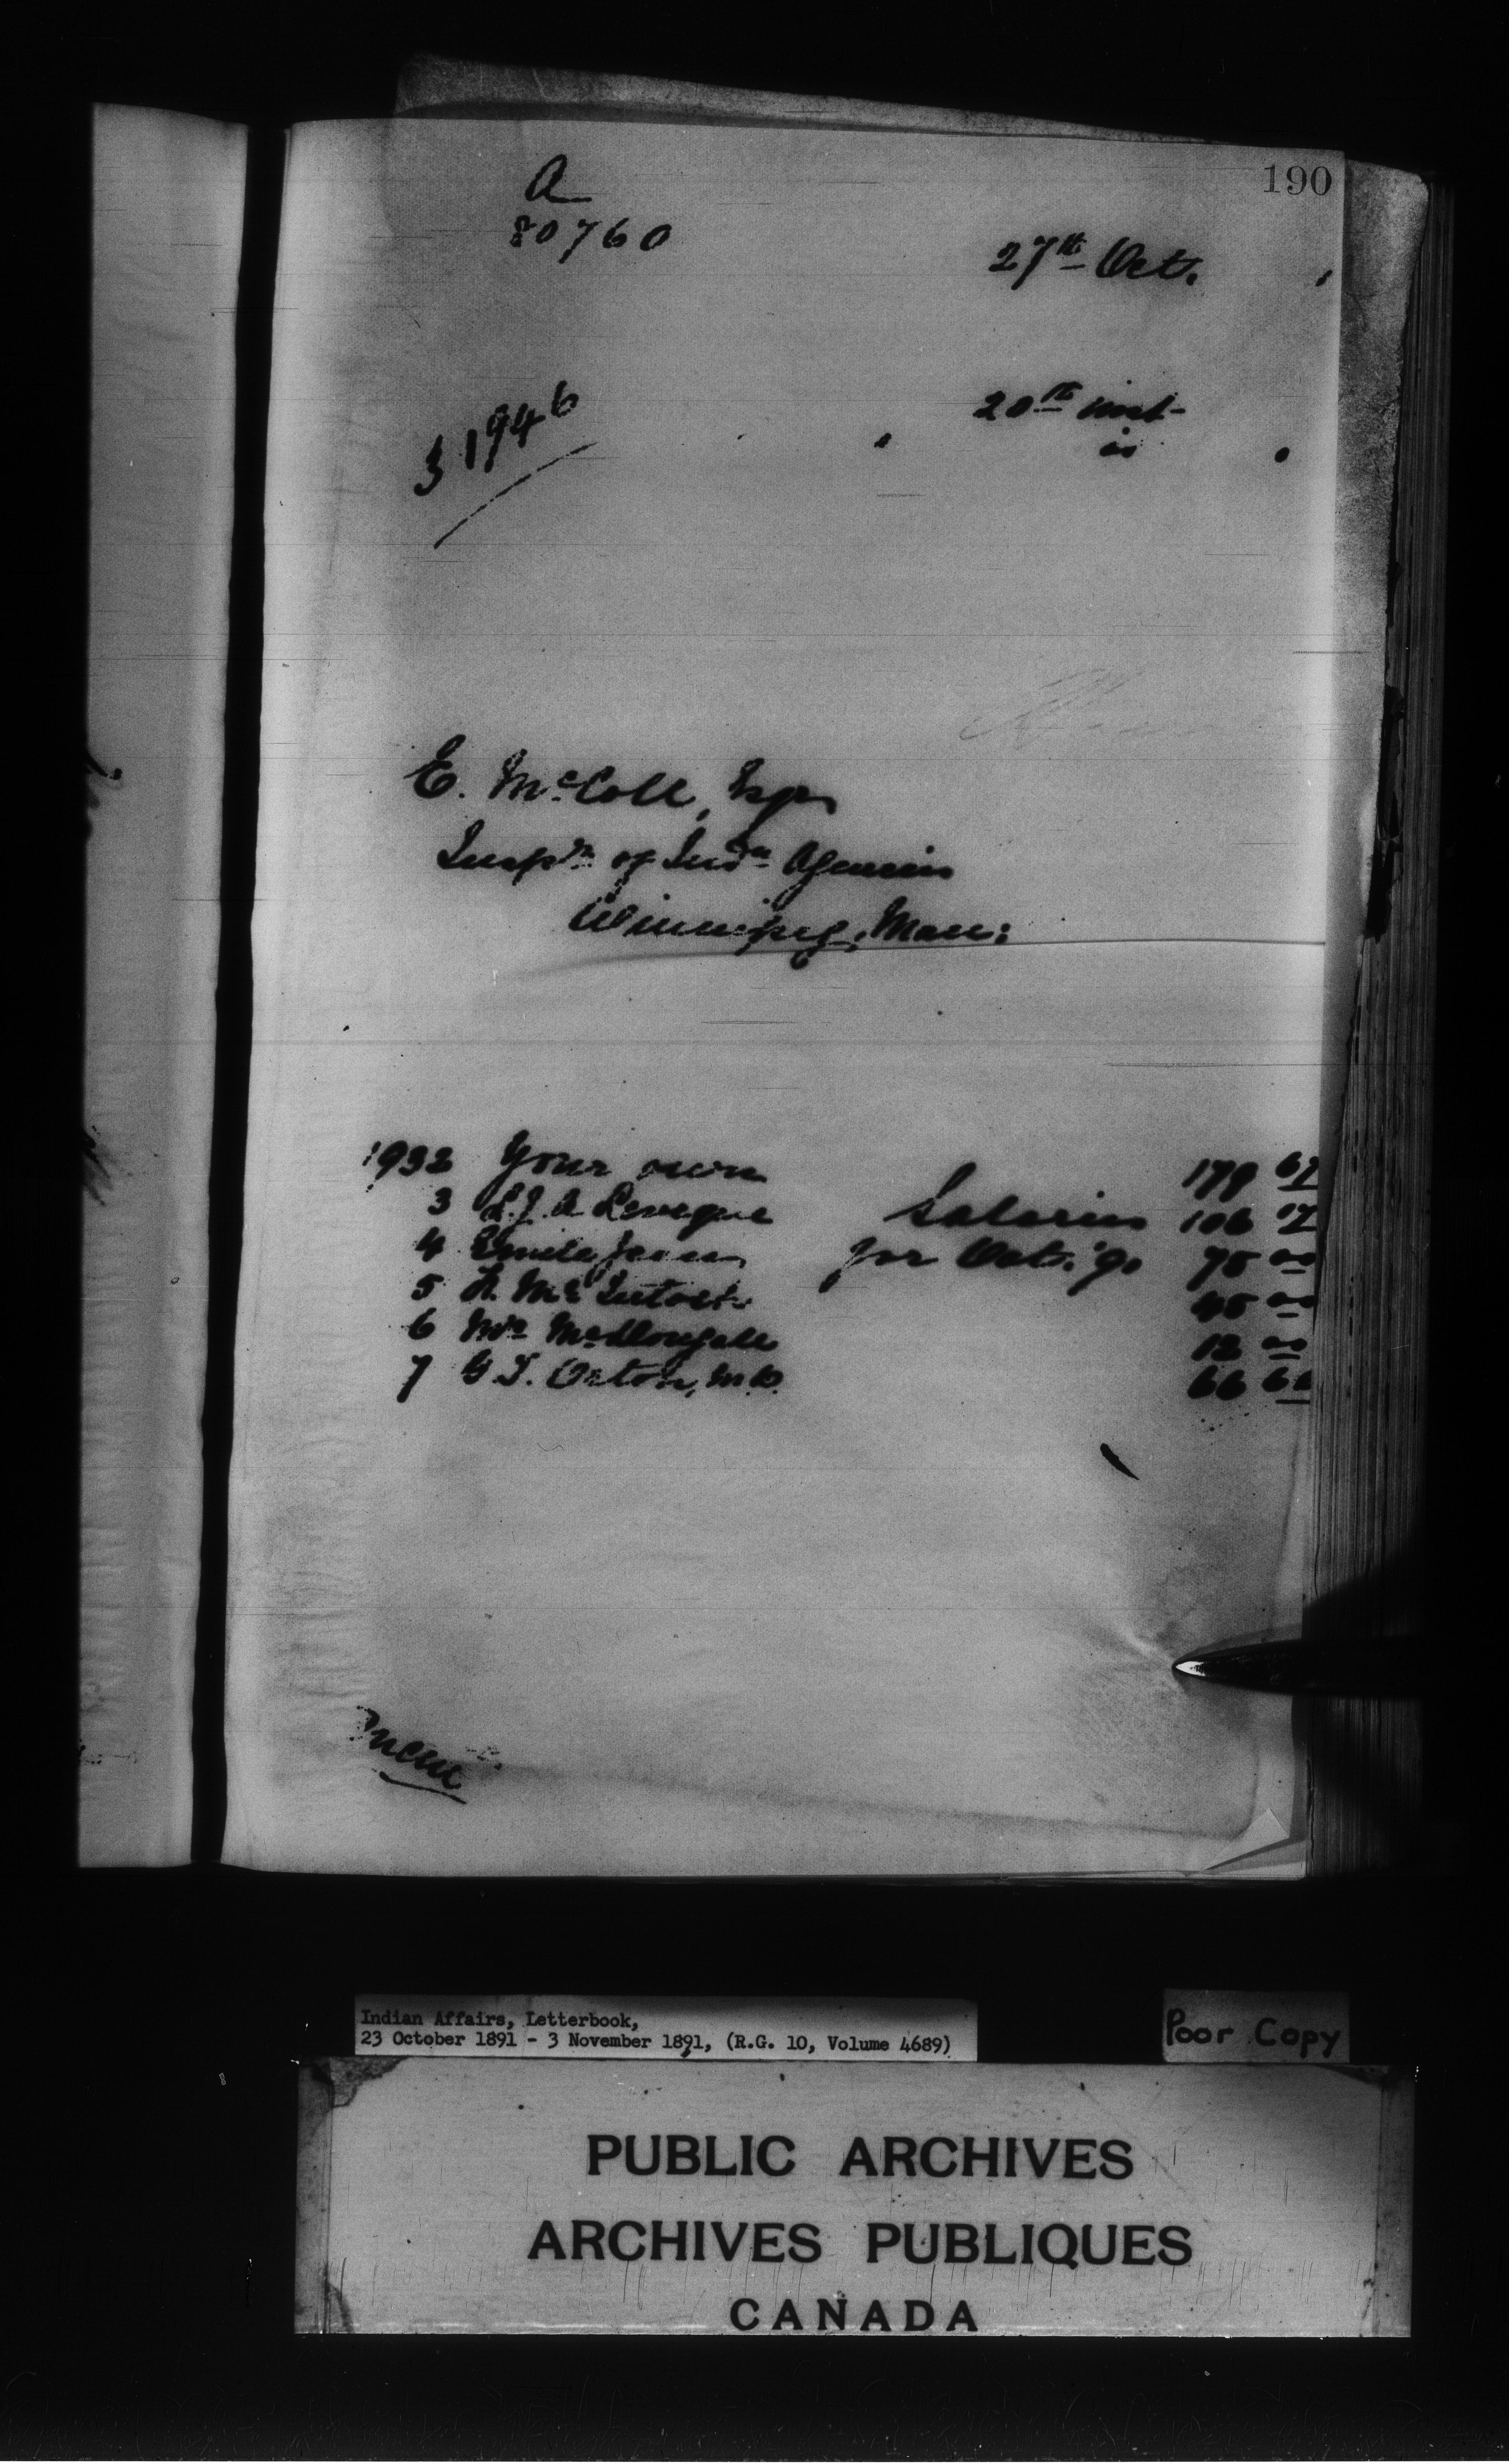 190
A
80760
27th Oct.
31946
20th inst
is
E. McColl, Esqr
Inspr. of Indn Agencies
Winnipeg, Man:
1932 Your own 179 67
3 L.J.A. Leveque Salaries 106 07
4 Emile Jean for Oct. '91 75 00
5 A. McIntosh 45 00
6 Mrs McDougall 12 00
7 G.T. Orton, M.D. 66 66
Indian Affairs, Letterbook,
23 October 1891 - 3 November 1891, (R.G. 10, Volume 4689)
Poor Copy
PUBLIC ARCHIVES
ARCHIVES PUBLIQUES
CANADA